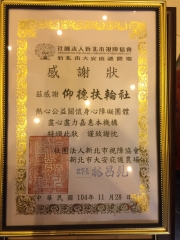 社團法人新北市視障協會
新北市大安庇護農場
感謝狀
茲感謝 仰德扶輪社
熱心公益關懷身心障礙團體
盡心盡力嘉惠本機構
特頒此狀 謹致謝忱
社團法人新北市視障協會
新北市大安庇護農場
中華民國104年11月28日